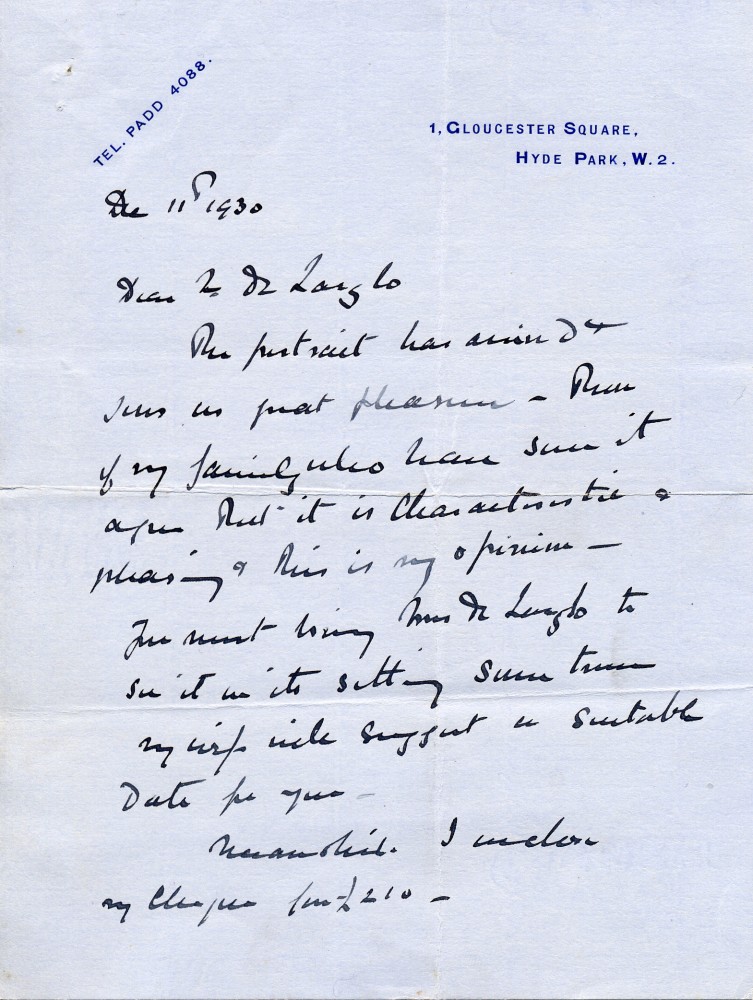 TEL. PADD 4088.
1, GLOUCESTER SQUARE,
HYDE PARK, W.2.
Dec 11th 1930
Dear Mr de Laszlo
The portrait has arrived &
gives us great pleasure - Those
of my family who have seen it
agree that it is characteristic &
pleasing & this is my opinion -
You must bring Mrs de Laszlo to
see it in its setting some time
my wife will suggest a suitable
Date for you -
Meanwhile I enclose
my cheque for £210 -